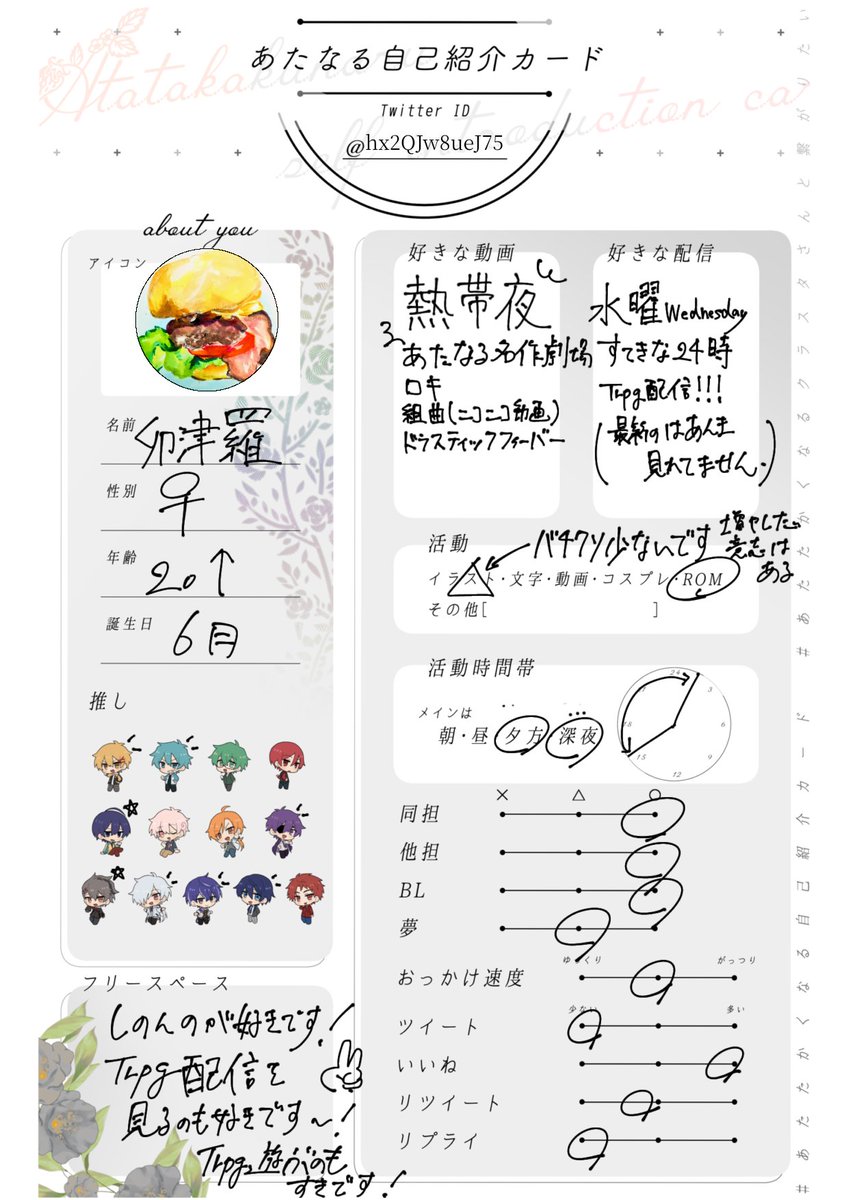 あたなる自己紹介カード
Twitter ID
@hx2QJw8ueJ75
about you
アイコン
名前
卯津羅
性別
♀
年齢
20↑
誕生日
6月
推し
フリースペース
しのんのが好きです!
Trpg配信を
見るのも好きです〜!
Trpg遊ぶのも
すきです!
好きな動画
熱帯夜
あたなる名作劇場
ロキ
組曲(ニコニコ動画)
ドラスティックフィーバー
好きな配信
水曜Wednesday
すてきな24時
Trpg配信!!!
(最新のはあんま
見れてません.)
活動
バチクソ少ないです
増やしたい
意志は
ある
イラスト・文字・動画・コスプレ・ROM
その他[ ]
活動時間帯
メインは
朝・昼・夕方・深夜
24
3
6
9
12
15
18
× △ ○
同担
他担
BL
夢
ゆっくり がっつり
おっかけ速度
少ない 多い
ツイート
いいね
リツイート
リプライ
#あたたかくなる自己紹介カード #あたたかくなるクラスタさんと繋がりたい